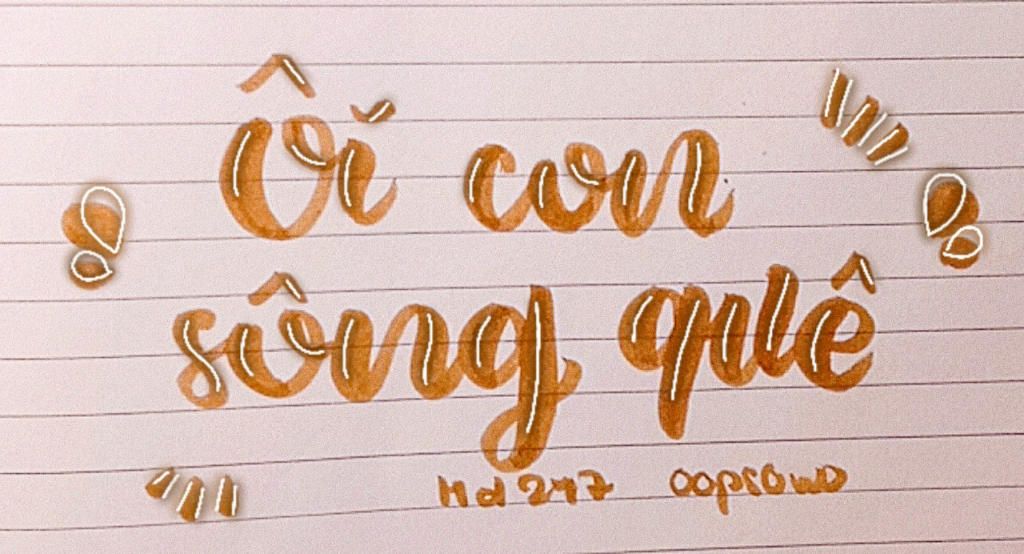 Ôĭ con
sông quê
Hd247 oopsowo